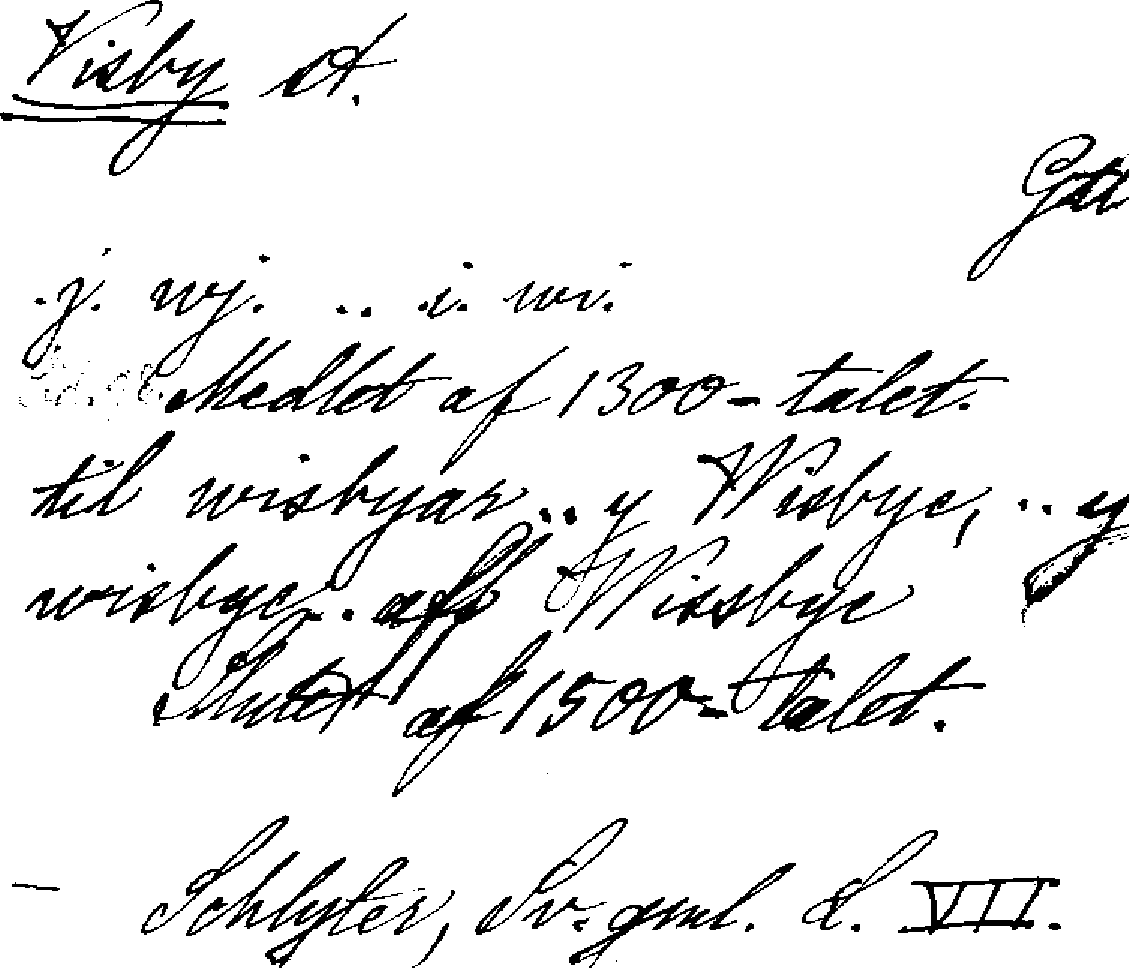 Visby st.
Gtl
.j. wj. .. .i. wi.
Medlet af 1300-talet.
til wisbyar .. y Wisbye, .. y
wisbye. aff Wissbye
Slutet af 1500-talet.
— Schlyter, Sv. gml. L. VII.